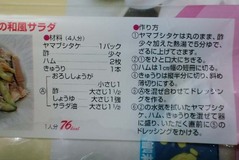 の和風サラダ
●材料（4人分）
ヤマブシタケ 1パック
酢 少々
ハム 2枚
きゅうり 1本
おろししょうが
小さじ1
酢 大さじ1½
しょうゆ 大さじ1
サラダ油 大さじ1
1人分 76kcal
●作り方
①ヤマブシタケは丸のまま、酢
少々加えた熱湯で5分ゆで、
ざるに上げてさます。
②①をひと口大にちぎる。
③ハムは1cm幅の短冊に切る。
④きゅうりは縦半分に切り、斜め
薄切りにする。
⑤Aを混ぜ合わせてドレッシン
グを作る。
⑥②の水気を拭いたヤマブシ
タケ、③④を合わせて器に盛
り、いただく直前に⑤の
ドレッシングをかける。